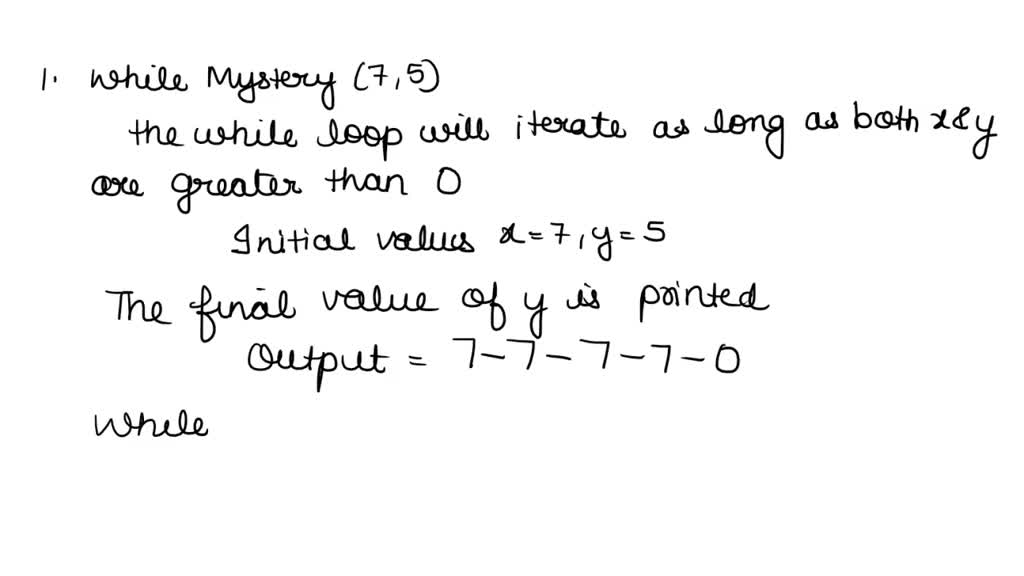 1. While Mystery (7,5)
the while loop will iterate as long as both x & y
are greater than 0
Initial values x = 7, y = 5
The final value of y is printed
Output = 7-7-7-7-0
While